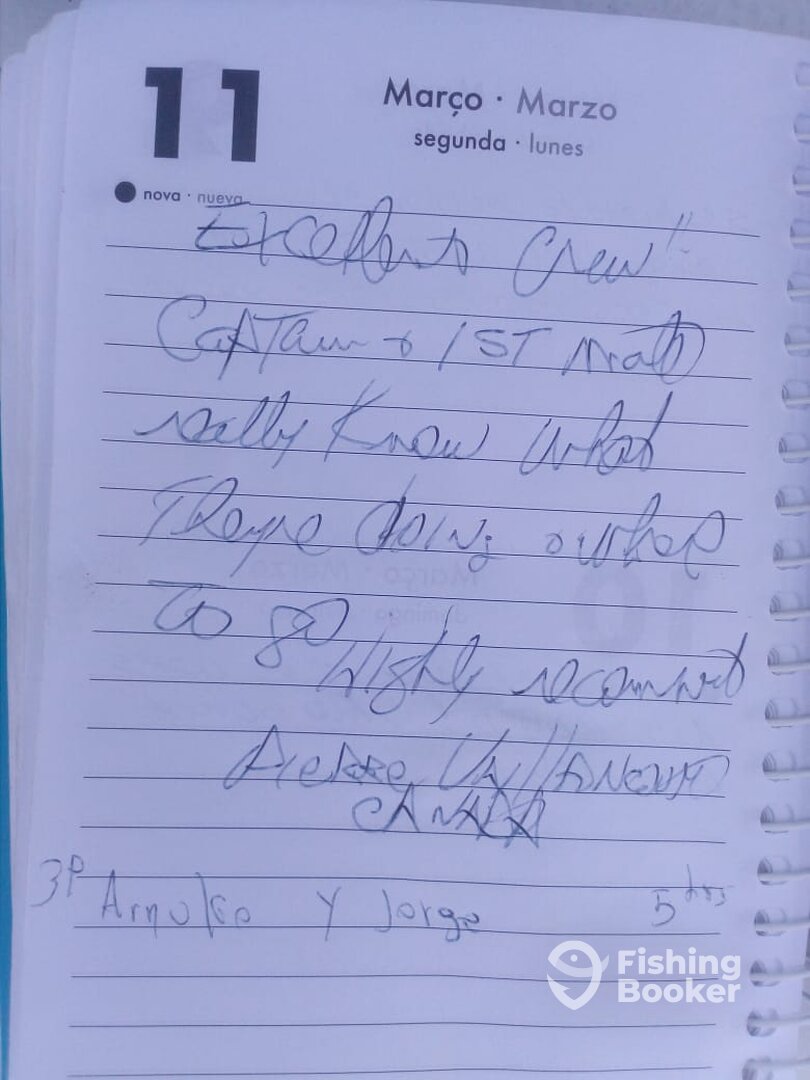 11
Março · Marzo
segunda · lunes
nova · nueva
Excellent Crew"
Captain + 1ST Mate
really Know what
They're doing & where
To go
Highly recommend
Pierre
CANADA
3P Arnulfo Y Jorge 5 hrs
Fishing
Booker